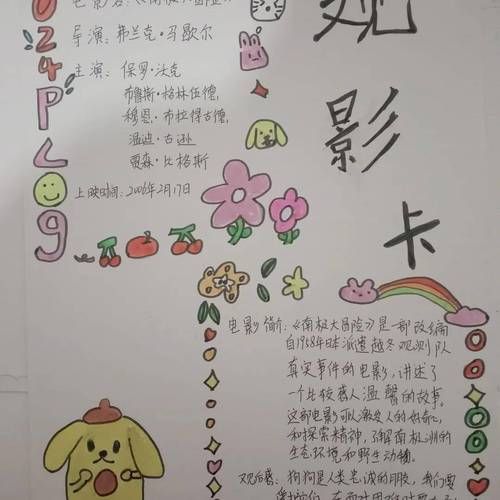 观
影
卡
024PL
9
电影名：《南极大冒险》
导演：弗兰克·马歇尔
主演：保罗·沃克
布鲁斯·格林伍德，
穆恩·布拉得古德，
温迪·古逊
贾森·比格斯
上映时间：2006年2月17日
电影简介：《南极大冒险》是一部改编
自1958年日本派遣越冬观测队
真实事件的电影，讲述了
一个比较感人温馨的故事。
这部电影可以激发人的好奇心
和探索精神，了解南极洲的
生态环境和野生动物。
观后感：狗狗是人类忠诚的朋友，我们要